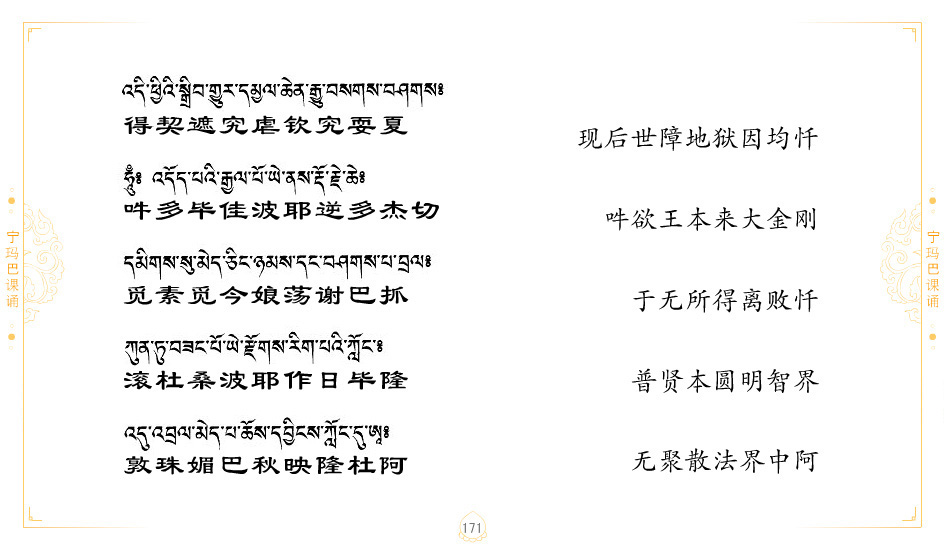 འདི་ཕྱིའི་སྒྲིབ་གྱུར་དམྱལ་ཆེན་རྒྱུ་བསགས་བཤགས༔
得契遮究虐钦究耍夏
现后世障地狱因均忏
ཧཱུྃ༔ འདོད་པའི་རྒྱལ་པོ་ཡེ་ནས་རྡོ་རྗེ་ཆེ༔
吽多毕佳波耶逆多杰切
吽欲王本来大金刚
དམིགས་སུ་མེད་ཅིང་ཉམས་དང་བཤགས་པ་བྲལ༔
觅素觅今娘荡谢巴抓
于无所得离败忏
ཀུན་ཏུ་བཟང་པོ་ཡེ་རྫོགས་རིག་པའི་ཀློང་༔
滚杜桑波耶作日毕隆
普贤本圆明智界
འདུ་འབྲལ་མེད་པ་ཆོས་དབྱིངས་ཀློང་དུ་ཨཱ༔
敦珠媚巴秋映隆杜阿
无聚散法界中阿
宁玛巴课诵
宁玛巴课诵
171